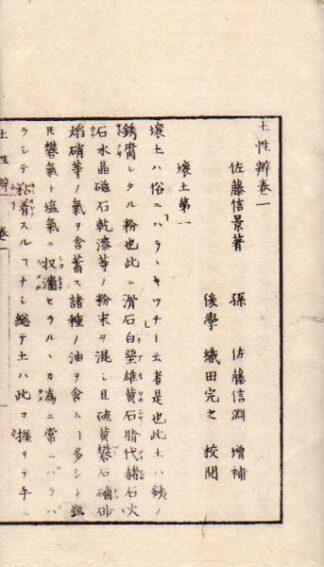 土性辨卷一
佐藤信景著　孫　佐藤信淵　増補
後學　織田完之　校閲
壤土第一
壤土ハ俗ニ「ハラ丶キツチ」ー云者是也此土ハ鉄ノ
銹腐シタル粉也此ニ滑石白堊雄黄石脂代赭石火
石水晶磁石乾漆等ノ粉末ヲ混シ且硫黄礬石硇砂
焔硝等ノ氣ヲ含蓄ス諸種ノ油ヲ含ムー多シト雖
𪜈礬氣ト塩氣ニ収濇セラルヽカ為ニ常ニパラパ
ラシテ粘着スルヿナシ總テ土ハ此ヲ握リテ手ニ
土性辨　卷